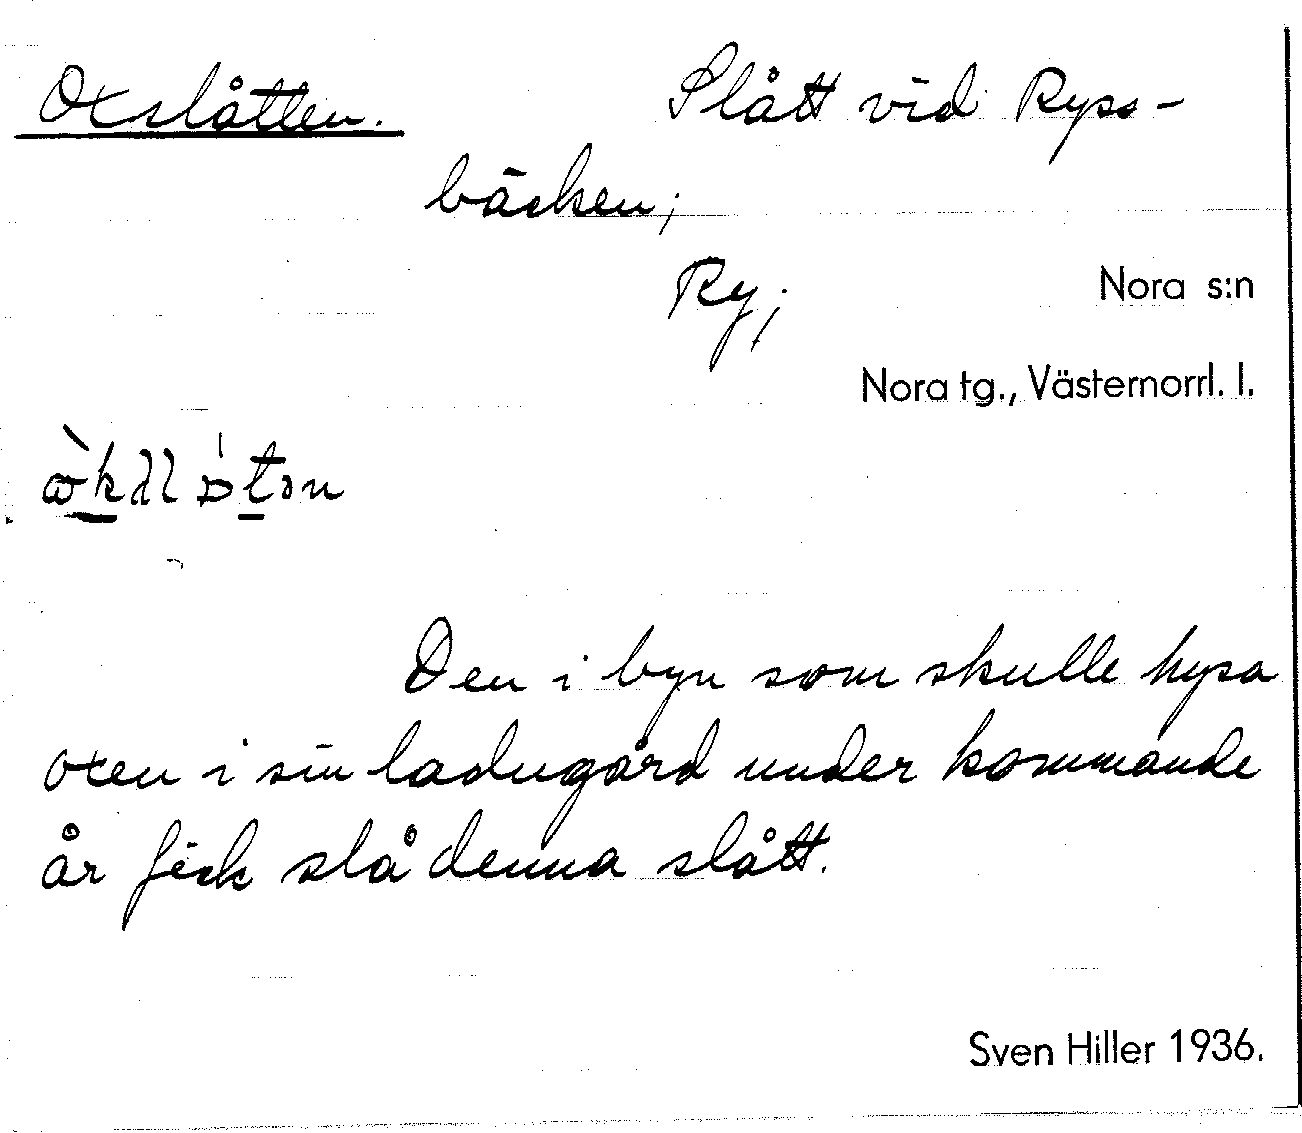 Oxslåtten. Slått vid Ryss-
bäcken;
Ry; Nora s:n
Nora tg., Västernorrl. l.
Den i byn som skulle hysa
oxen i sin ladugård under kommande
år fick slå denna slått.
Sven Hiller 1936.